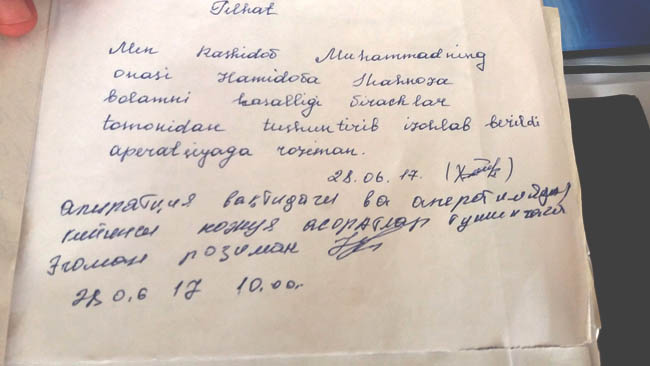 Tilhat
Men Rashidov Muhammadning
onasi Hamidova Shahnoza
bolamni kasalligi virachlar
tomonidan tushuntirib izohlab berildi
aperatsiyaga roziman.
28.06.17.
апиратция вактидаги ва аператциядан
кейингиножуя асоратлар тушинчага
Эгаман розиман
28 0.6 17 10.00.